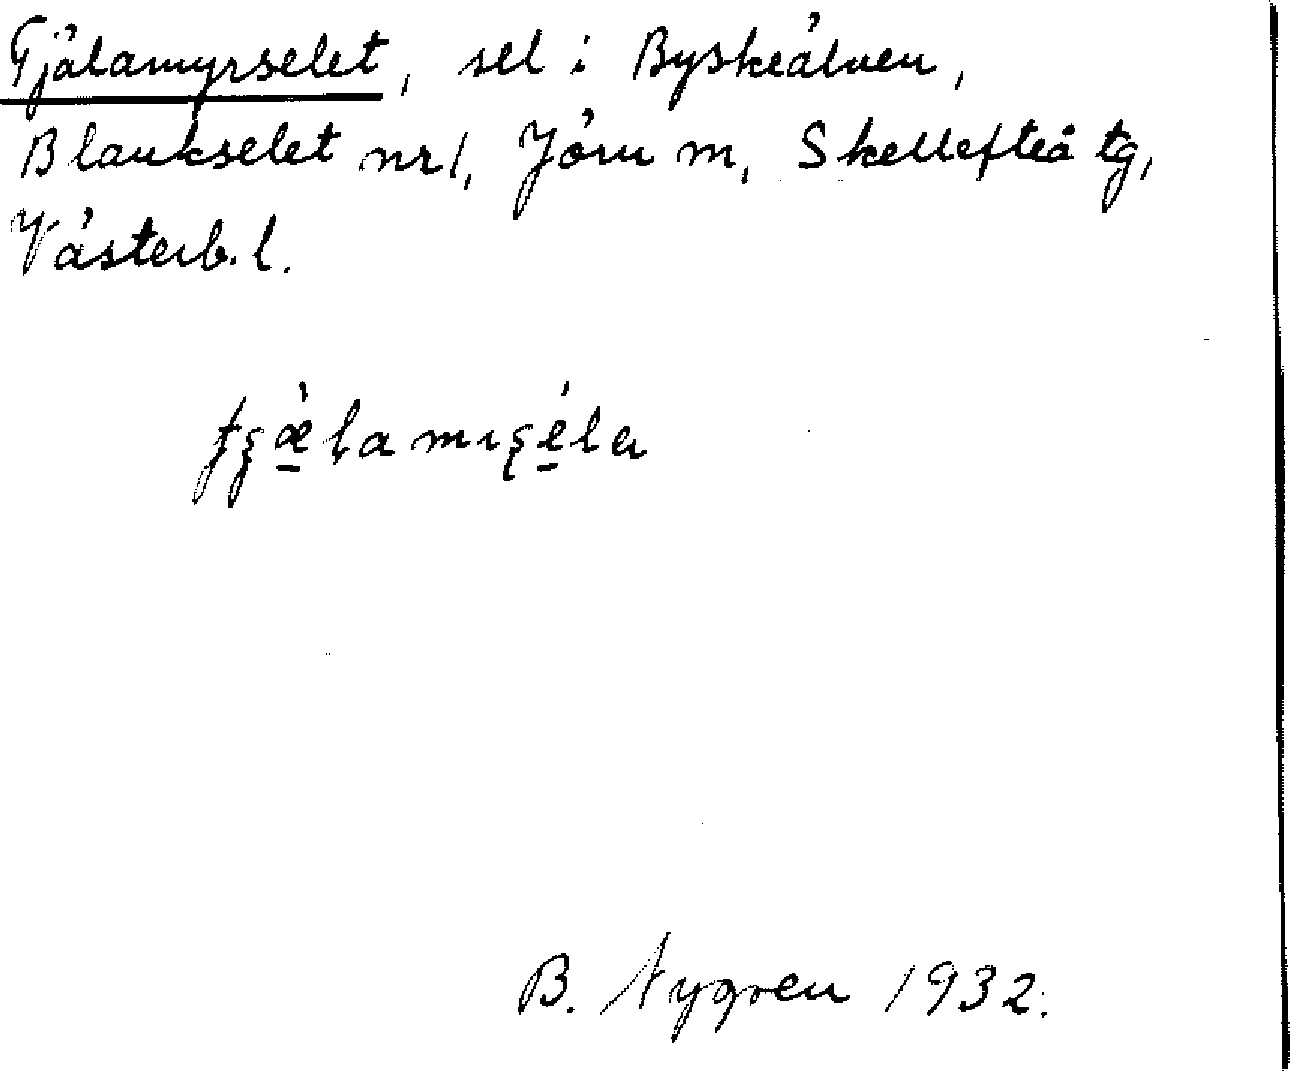 Tjälamyrselet, sel i Byskeälven,
Blankselet nr 1, Jörn m, Skellefteå tg,
Västerb. l.
B. Nygren 1932.